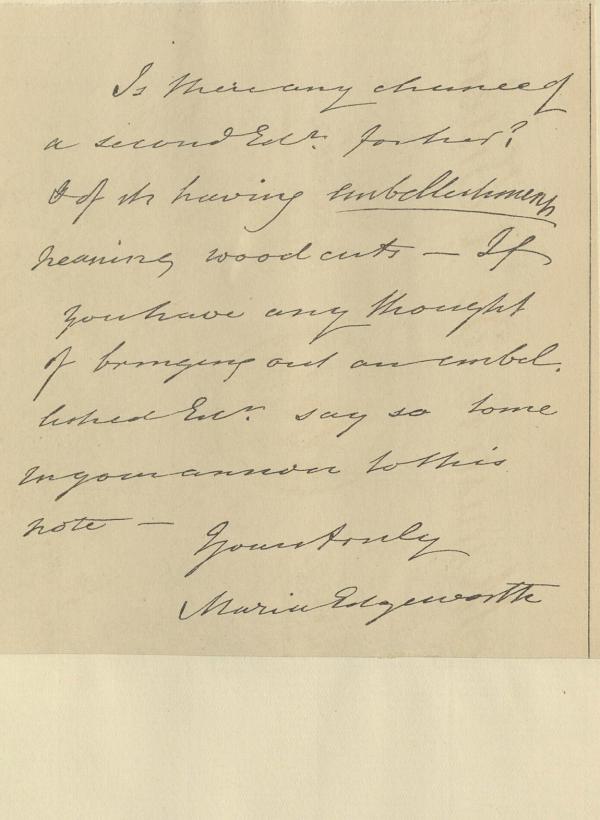 Is there any chance of
a second Edn. further?
& of its having embellishments
meaning wood cuts — If
you have any thought
of bringing out an embel.
lished Edn. say so to me
in your answer to this
note —
Yours truly
Maria Edgeworth